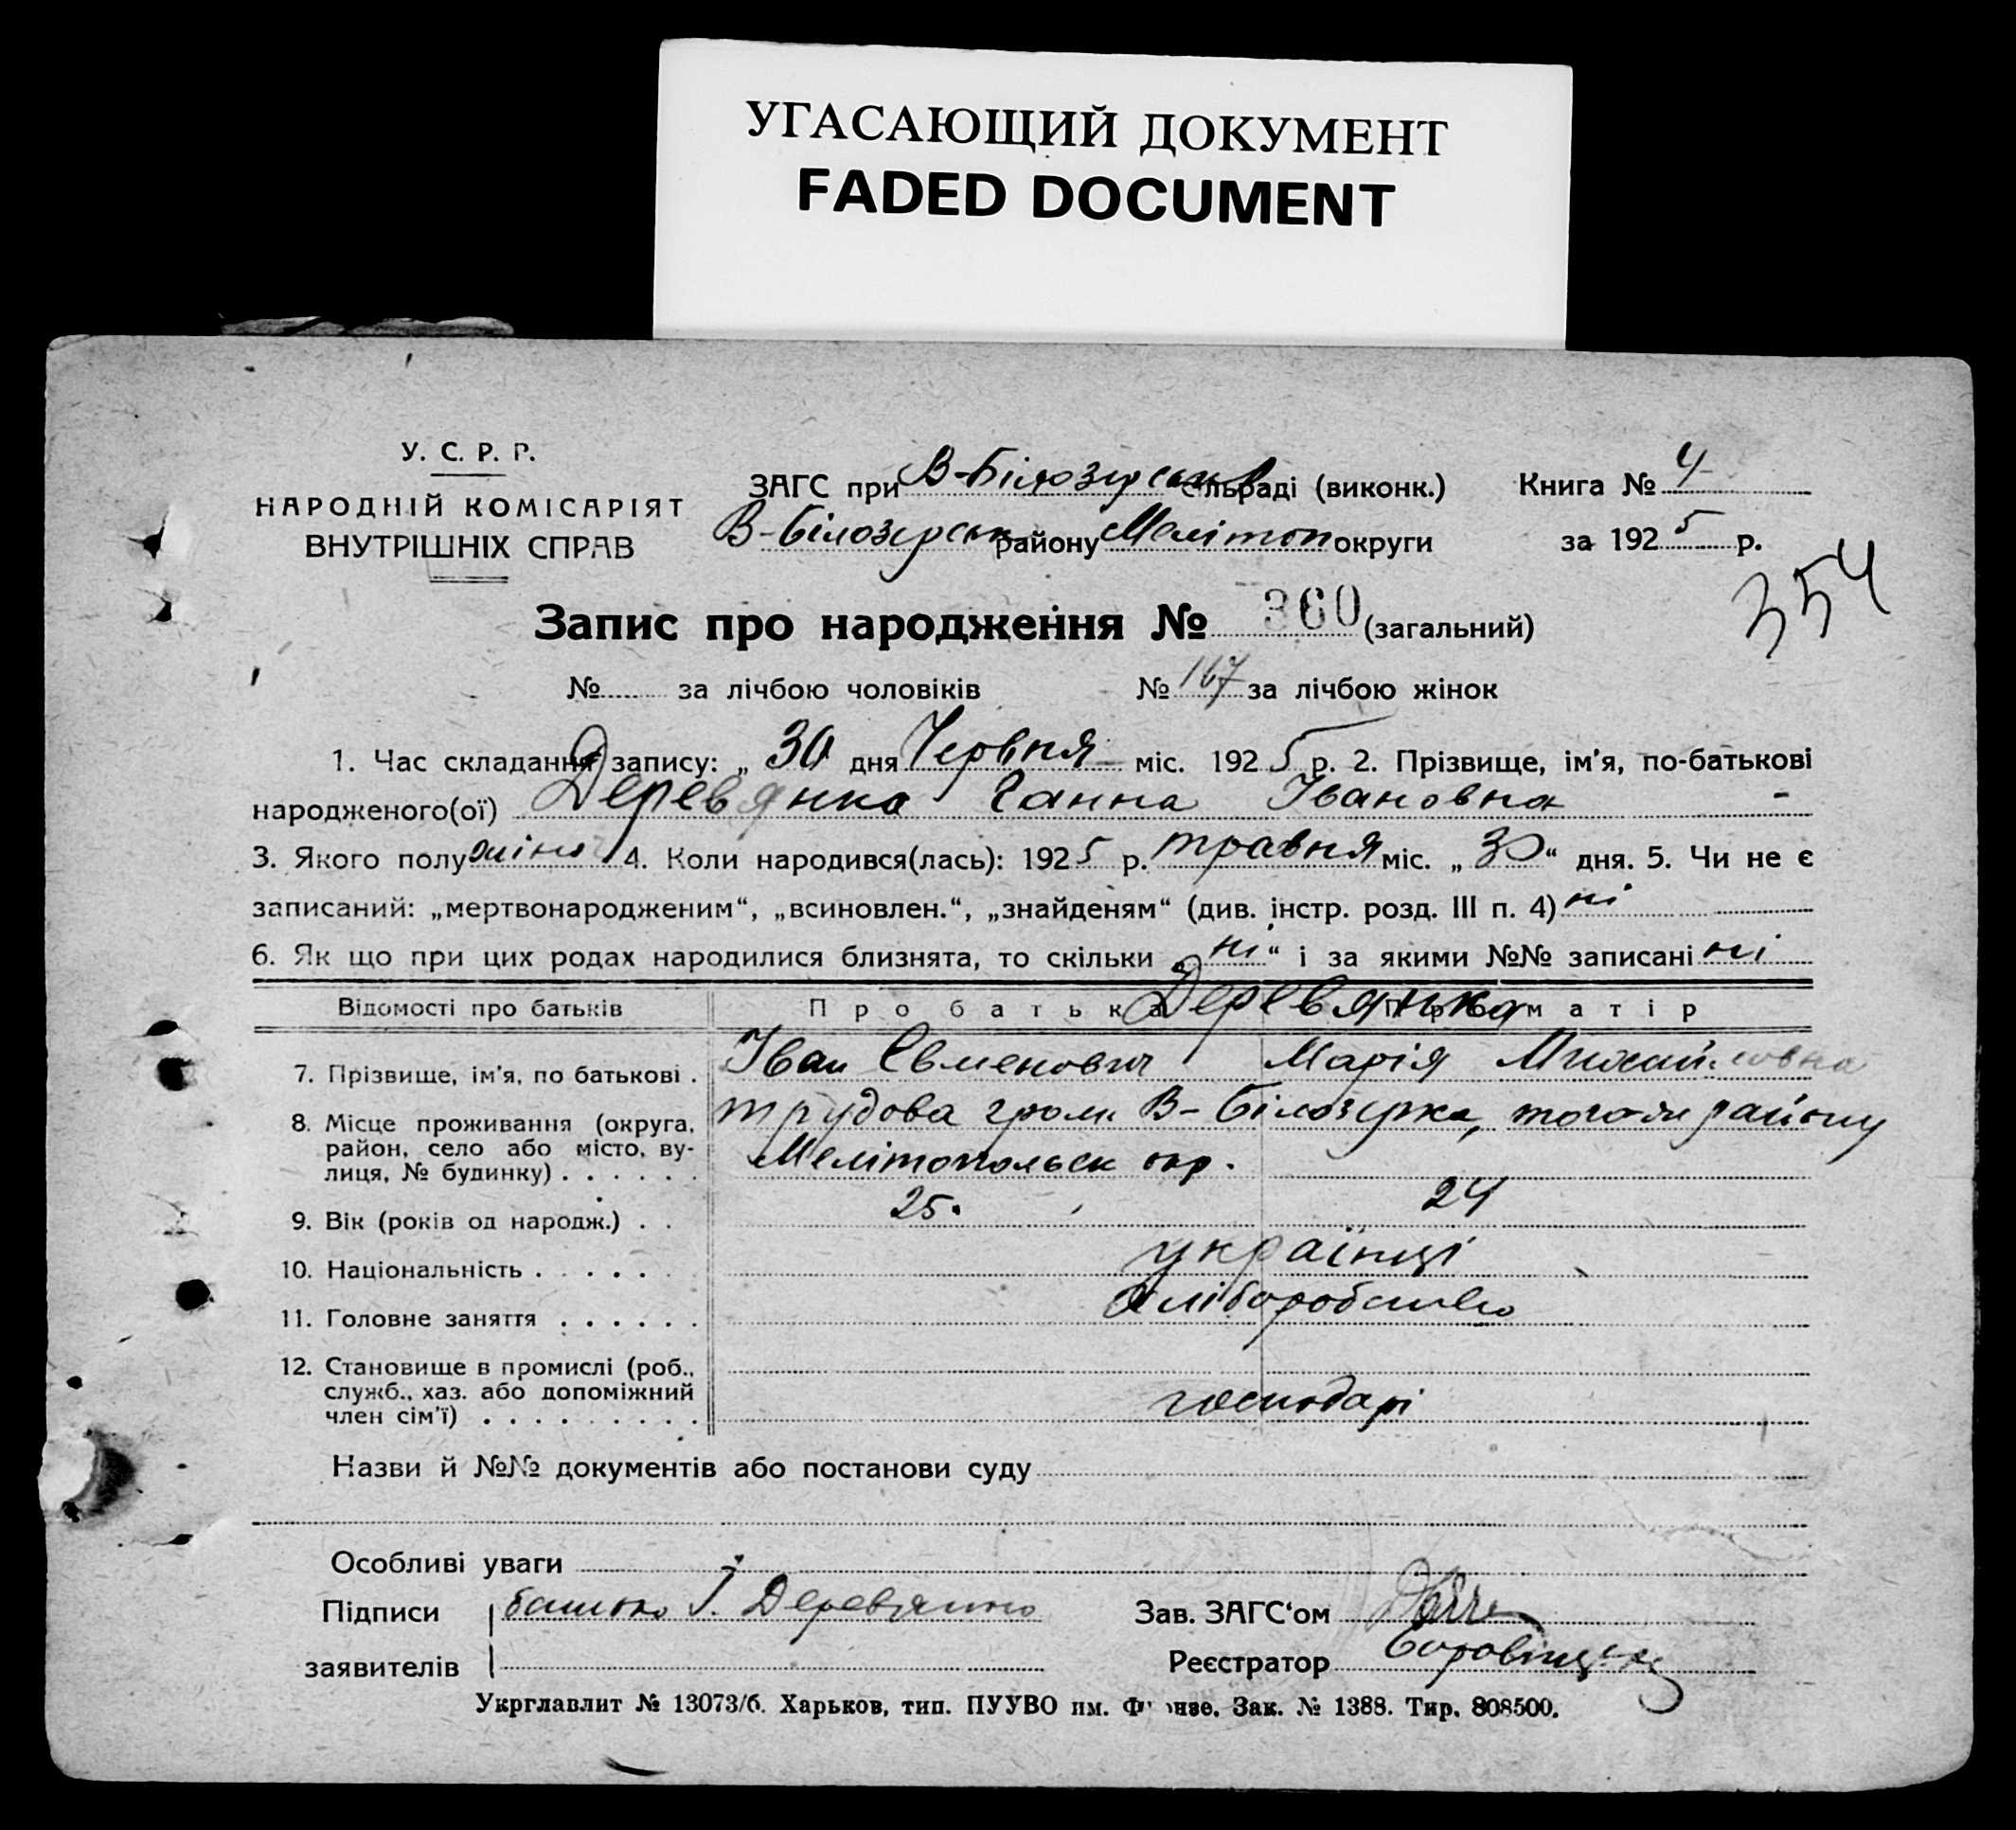 УГАСАЮЩИЙ ДОКУМЕНТ
FADED DOCUMENT
У. С. Р. Р.
НАРОДНІЙ КОМІСАРІЯТ
ВНУТРІШНІХ СПРАВ
ЗАГС при В-Білозерськ сільраді (виконк.)
В-Білозерськ району Мелітоп округи
Книга № 4
за 1925 р.
354
Запис про народження № 360 (загальний)
№ за лічбою чоловіків № 167 за лічбою жінок
1. Час складання запису: „ 30 дня Червня міс. 1925 р. 2. Прізвище, ім'я, по-батькові
народженого(ої) Деревянко Ганна Івановна
3. Якого полу жіно 4. Коли народився(лась): 1925 р. травня міс. „ 30 “ дня. 5. Чи не є
записаний: „мертвонародженим“, „всиновлен.“, „знайденям“ (див. інстр. розд. III п. 4) ні
6. Як що при цих родах народилися близнята, то скільки „ ні “ і за якими №№ записані ні
Відомості про батьків Про батька Деревянко Про матір
7. Прізвище, ім'я, по батькові . Іван Євменович Марія Михайловна
8. Місце проживання (округа, трудова гром. В-Білозерка, того ж району
район, село або місто, ву- Мелітопольськ окр.
лиця, № будинку) . . . . . .
9. Вік (років од народж.) . . 25. 24
10. Національність . . . . . українці
11. Головне заняття . . . . . . хліборобство
12. Становище в промислі (роб.,
служб., хаз. або допоміжний
член сім'ї) . . . . . . . . . господарі
Назви й №№ документів або постанови суду
Особливі уваги
Підписи батько І. Деревянко Зав. ЗАГС‘ом
заявителів Реєстратор
Укрглавлит № 13073/б. Харьков, тип. ПУУВО им. Фрунзе. Зак. № 1388. Тир. 808500.